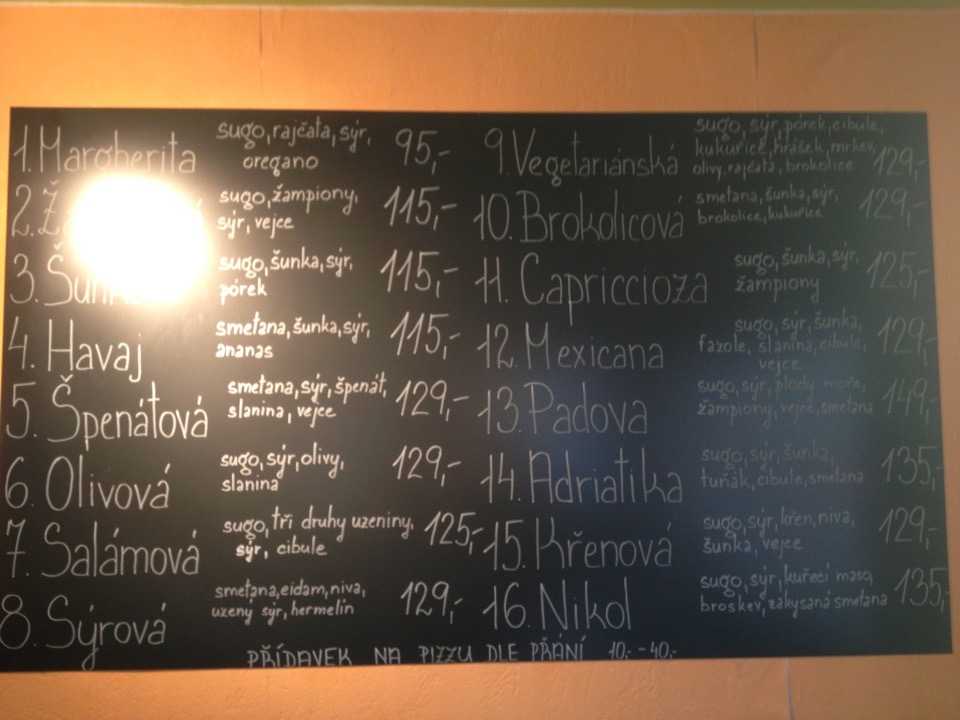 1. Margherita sugo, rajčata, sýr, 95,-
oregano
2. sugo, žampiony, 115,-
sýr, vejce
3. sugo, šunka, sýr, 115,-
pórek
4. Havaj smetana, šunka, sýr, 115,-
ananas
5. Špenátová smetana, sýr, špenát, 129,-
slanina, vejce
6. Olivová sugo, sýr, olivy, 129,-
slanina
7. Salámová sugo, tři druhy uzeniny, 125,-
sýr, cibule
8. Sýrová smetana, eidam, niva, 129,-
uzený sýr, hermelín
9. Vegetariánská sugo, sýr, pórek, cibule,
kukuřice, hrášek, mrkev, 129,-
olivy, rajčata, brokolice
10. Brokolicová smetana, šunka, sýr, 129,-
brokolice, kukuřice
11. Capriccioza sugo, šunka, sýr, 125,-
žampiony
12. Mexicana sugo, sýr, šunka, 129,-
fazole, slanina, cibule,
vejce
13. Padova sugo, sýr, plody moře, 149,-
žampiony, vejce, smetana
14. Adriatika sugo, sýr, šunka, 135,-
tuňák, cibule, smetana
15. Křenová sugo, sýr, křen, niva, 129,-
šunka, vejce
16. Nikol sugo, sýr, kuřecí maso, 135,-
broskev, zákysaná smetana
PŘÍDAVEK NA PIZZU DLE PŘÁNÍ 10,- -40,-